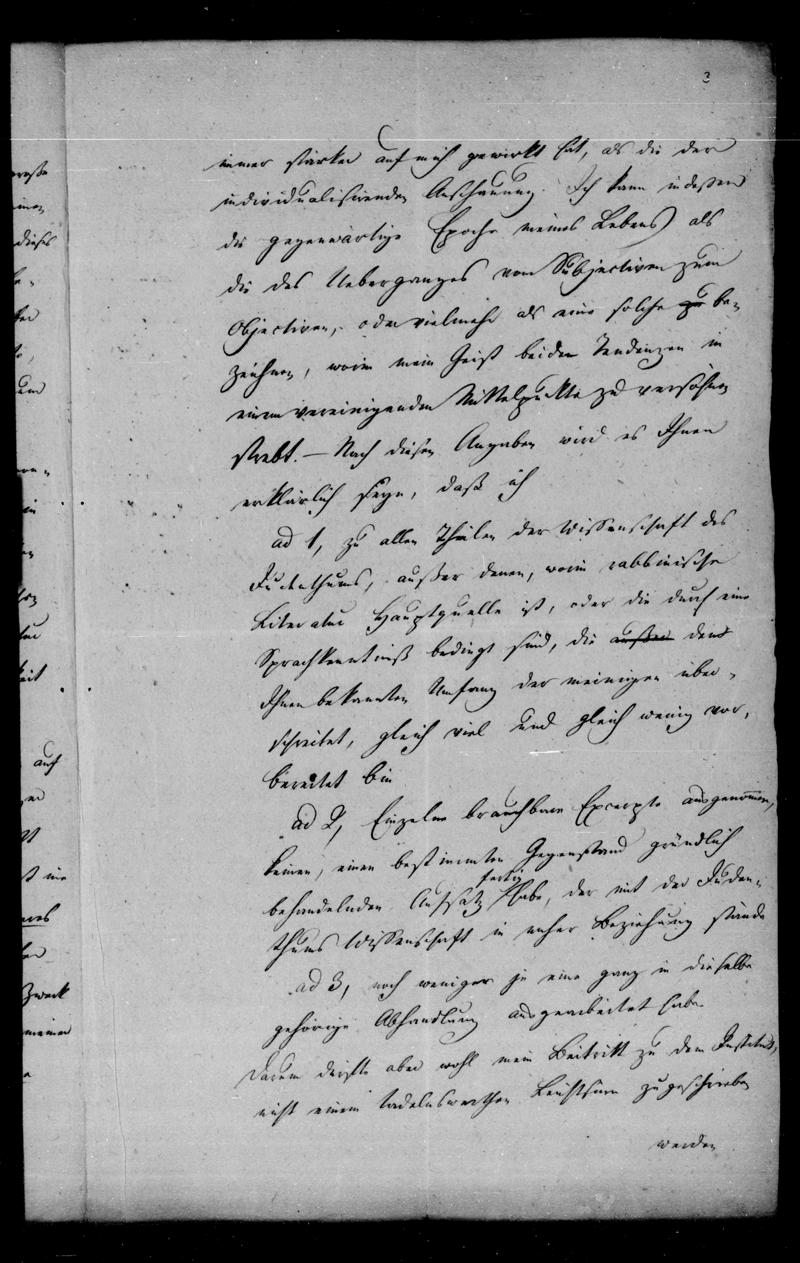 3
immer stärker auf mich gewirkt hat, als die der
individualisirenden Anschauung. Ich kann indessen
die gegenwärtige Epoche meines Lebens als
die des Ueberganges vom Subjectiven zum
Objectiven, oder vielmehr als eine solche zu be-
zeichnen, worin mein Geist beide Tendenzen in
einem vereinigenden Mittelpunkte zu versöhnen
strebt. — Nach diesen Angaben wird es Ihnen
erklärlich seyn, daß ich
ad 1, zu allen Theilen der Wissenschaft des
Judenthums, außer denen, worin rabbinische
Literatur Hauptquelle ist, oder die durch eine
Sprachkenntniß bedingt sind, die außer den
Ihnen bekannten Umfang der meinigen über-
schreitet, gleich viel und gleich wenig vor-
bereitet bin
ad 2, Einzelne brauchbare Excerpte ausgenommen,
keinen, einen bestimmten Gegenstand gründlich
behandelnden Aufsatz fertig habe, der mit der Juden-
thums Wissenschaft in naher Beziehung stände
ad 3, noch weniger je eine ganz in dieselbe
gehörige Abhandlung ausgearbeitet habe.
Darum dürfte aber wohl mein Beitritt zu dem Institut,
nicht einem tadelnswerthen Leichtsinn zugeschrieben
werden